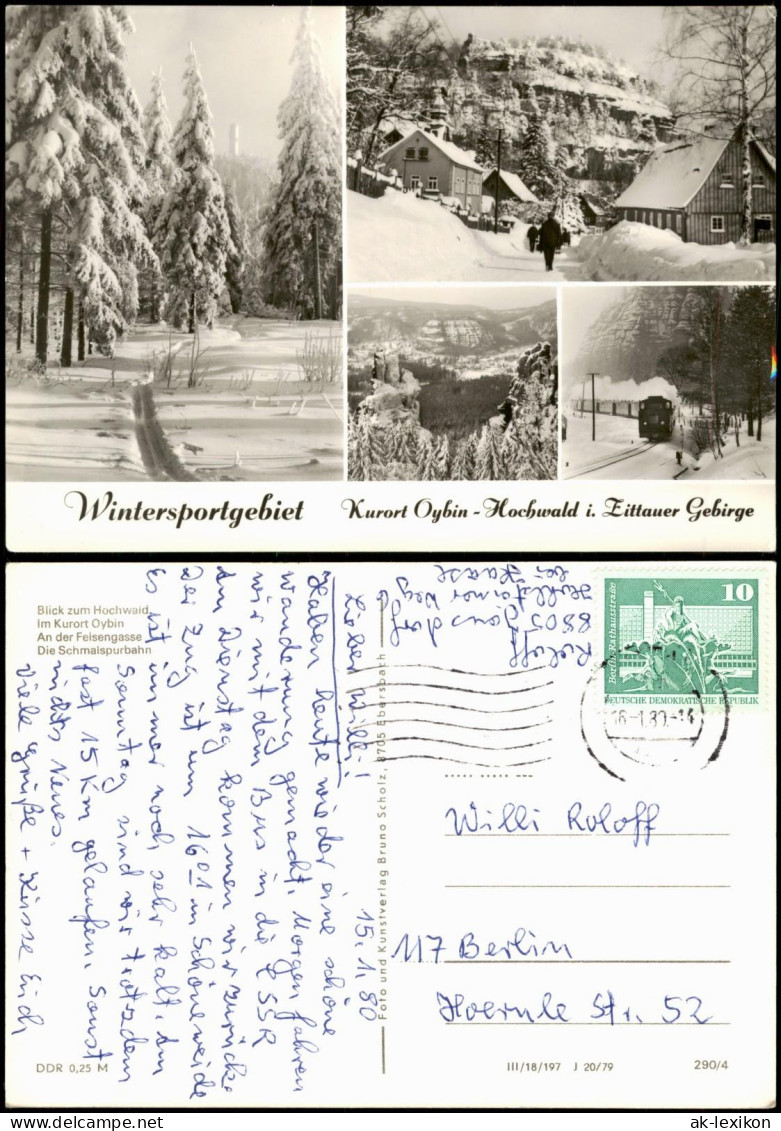 Wintersportgebiet
Kurort Oybin - Hochwald i. Zittauer Gebirge
Blick zum Hochwald
Im Kurort Oybin
An der Felsengasse
Die Schmalspurbahn
Roloff
8805 Jonsdorf
bei Haase
10
Berlin, Rathausstraße
DEUTSCHE DEMOKRATISCHE REPUBLIK
15.1.80
Lieber Willi!
Haben heute wieder eine schöne
Wanderung gemacht. Morgen fahren
wir mit dem Bus in die ČSSR
Am Dienstag kommen wir zurück.
Der Zug ist um 16⁰¹ in Schöneweide
Es ist immer noch sehr kalt. Am
Sonntag sind wir trotzdem
fast 15 Km gelaufen. Sonst
nichts Neues.
Viele Grüße + Küsse Erich
Foto und Kunstverlag Bruno Scholz, 8705 Ebersbach
Willi Roloff
117 Berlin
Hoernle Str. 52
DDR 0,25 M
III/18/197 J 20/79
290/4
ak-lexikon